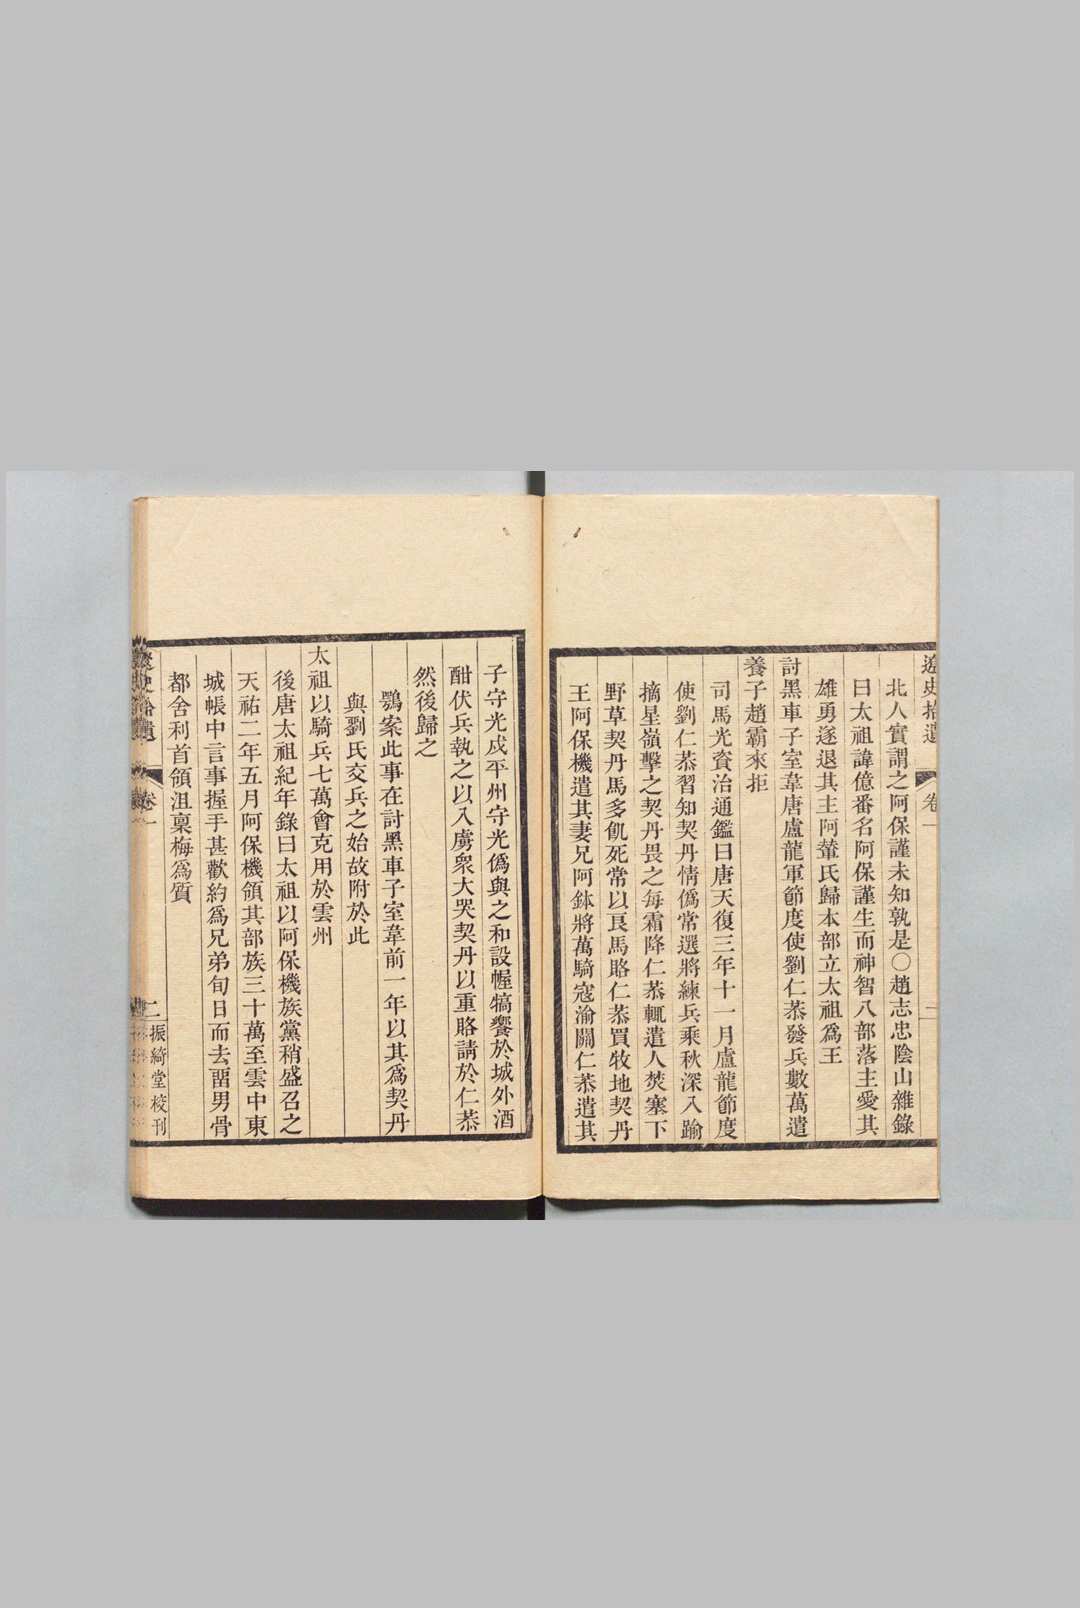 遼史拾遺 卷一
北人實謂之阿保謹未知孰是〇趙志忠陰山雜錄
曰太祖諱億番名阿保謹生而神智八部落主愛其
雄勇遂退其主阿輦氏歸本部立太祖爲王
討黑車子室韋唐盧龍軍節度使劉仁恭發兵數萬遣
養子趙霸來拒
司馬光資治通鑑曰唐天復三年十一月盧龍節度
使劉仁恭習知契丹情僞常選將練兵乘秋深入踰
摘星嶺擊之契丹畏之每霜降仁恭輒遣人焚塞下
野草契丹馬多飢死常以良馬賂仁恭買牧地契丹
王阿保機遣其妻兄阿鉢將萬騎寇渝關仁恭遣其
子守光戍平州守光僞與之和設幄犒饗於城外酒
酣伏兵執之以入虜衆大哭契丹以重賂請於仁恭
然後歸之
鶚案此事在討黑車子室韋前一年以其爲契丹
與劉氏交兵之始故附於此
太祖以騎兵七萬會克用於雲州
後唐太祖紀年錄曰太祖以阿保機族黨稍盛召之
天祐二年五月阿保機領其部族三十萬至雲中東
城帳中言事握手甚歡約爲兄弟旬日而去畱男骨
都舍利首領沮稟梅爲質
卷一 二 振綺堂校刊